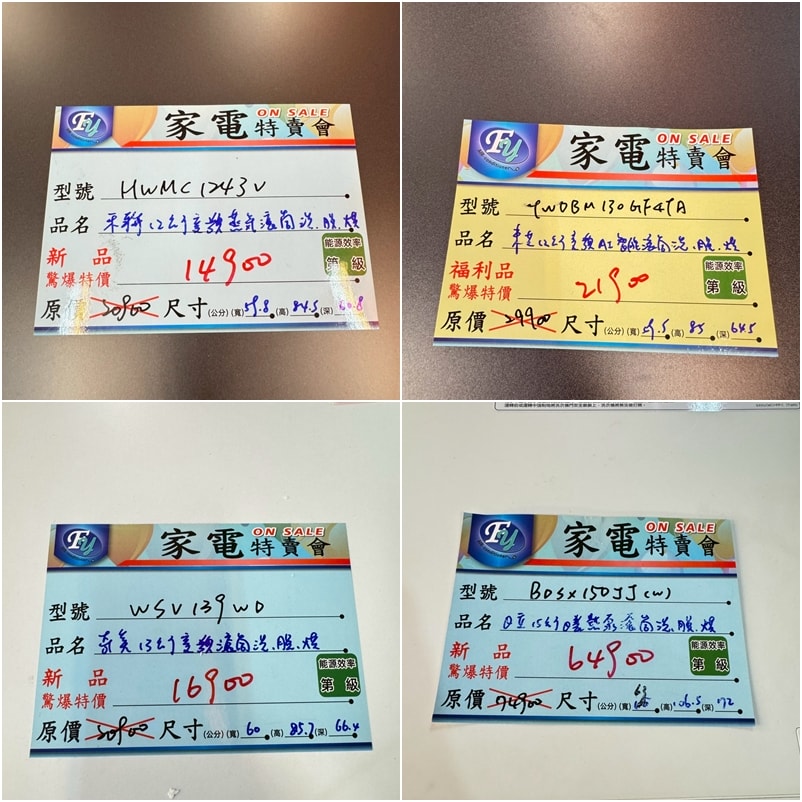 Fy 家電特賣會 ON SALE
型號 HWMC1243V
品名 禾聯12公斤變頻蒸氣滾筒洗、脫、烘
新品 驚爆特價 14900
能源效率 第 級
原價 20900 尺寸(公分)(寬)59.8(高)84.5(深)60.8
Fy 家電特賣會 ON SALE
型號 TWDBM130GF4TA
品名 東芝12公斤變頻AI智能滾筒洗、脫、烘
福利品 驚爆特價 21900
能源效率 第 級
原價 29900 尺寸(公分)(寬)59.5(高)85(深)64.5
Fy 家電特賣會 ON SALE
型號 WSV139WD
品名 奇美13公斤變頻滾筒洗、脫、烘
新品 驚爆特價 16900
能源效率 第 級
原價 20900 尺寸(公分)(寬)60(高)85.7(深)66.4
Fy 家電特賣會 ON SALE
型號 BDSX150JJ(W)
品名 日立15公斤日製熱泵滾筒洗、脫、烘
新品 驚爆特價 64900
能源效率 第 級
原價 74900 尺寸(公分)(寬)63(高)106.5(深)72